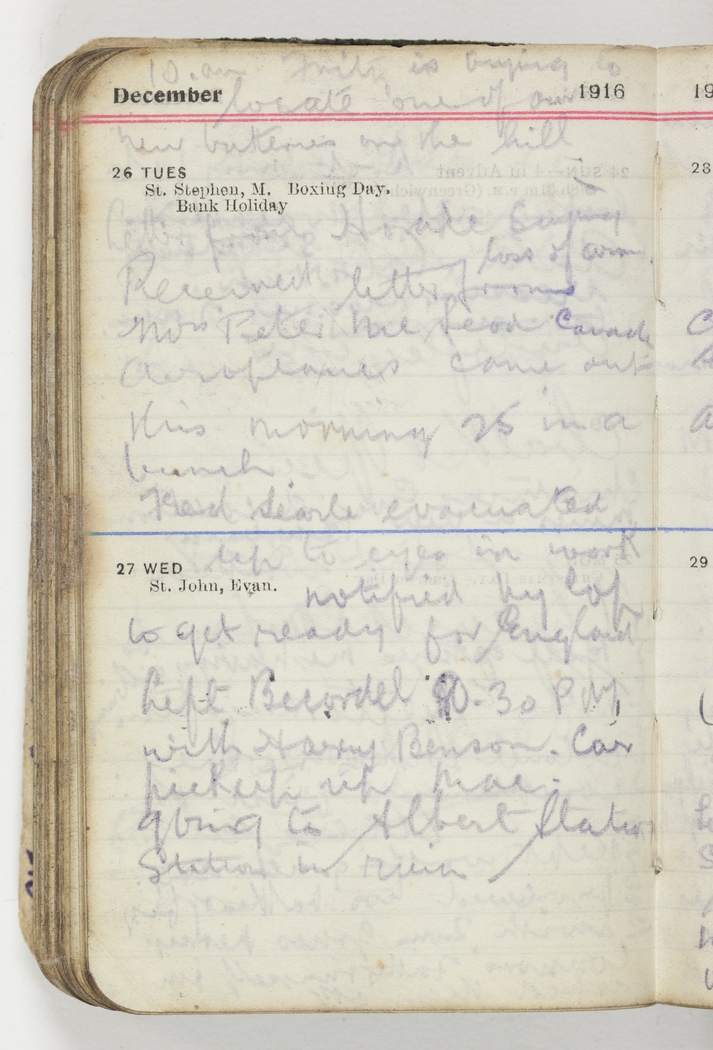 10. am Fritz is trying to
December 1916
locate one of our
new batteries on the hill
26 TUES
St. Stephen, M. Boxing Day.
Bank Holiday
Letter from Horace saying
loss of arm
Received letter from
Mrs Peter McLeod Canada
Aeroplanes came out
this morning 25 in a
bunch
Searle evacuated
27 WED
up to eyes in work
St. John, Evan.
notified by
to get ready for England
Left Becordel 10.30 PM
with Harry Benson. Car
pickup up Mac.
going to Albert Station
Station in ruin
19
28
29